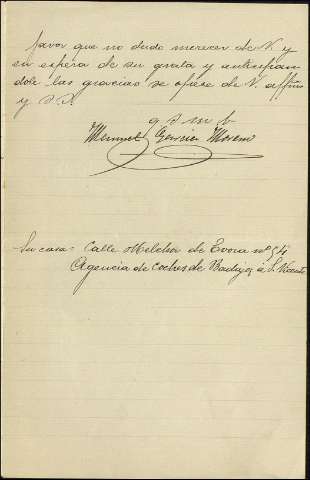 favor que no dudo merecer de V. y
en espera de su grata y anticipan-
dole las gracias se ofrece de V. affmo
y S. S.
q s m b
Manuel Moreno
Su casa = Calle Melchor de Evora nº 54
Agencia de Coches de Badajoz á S. Vicente